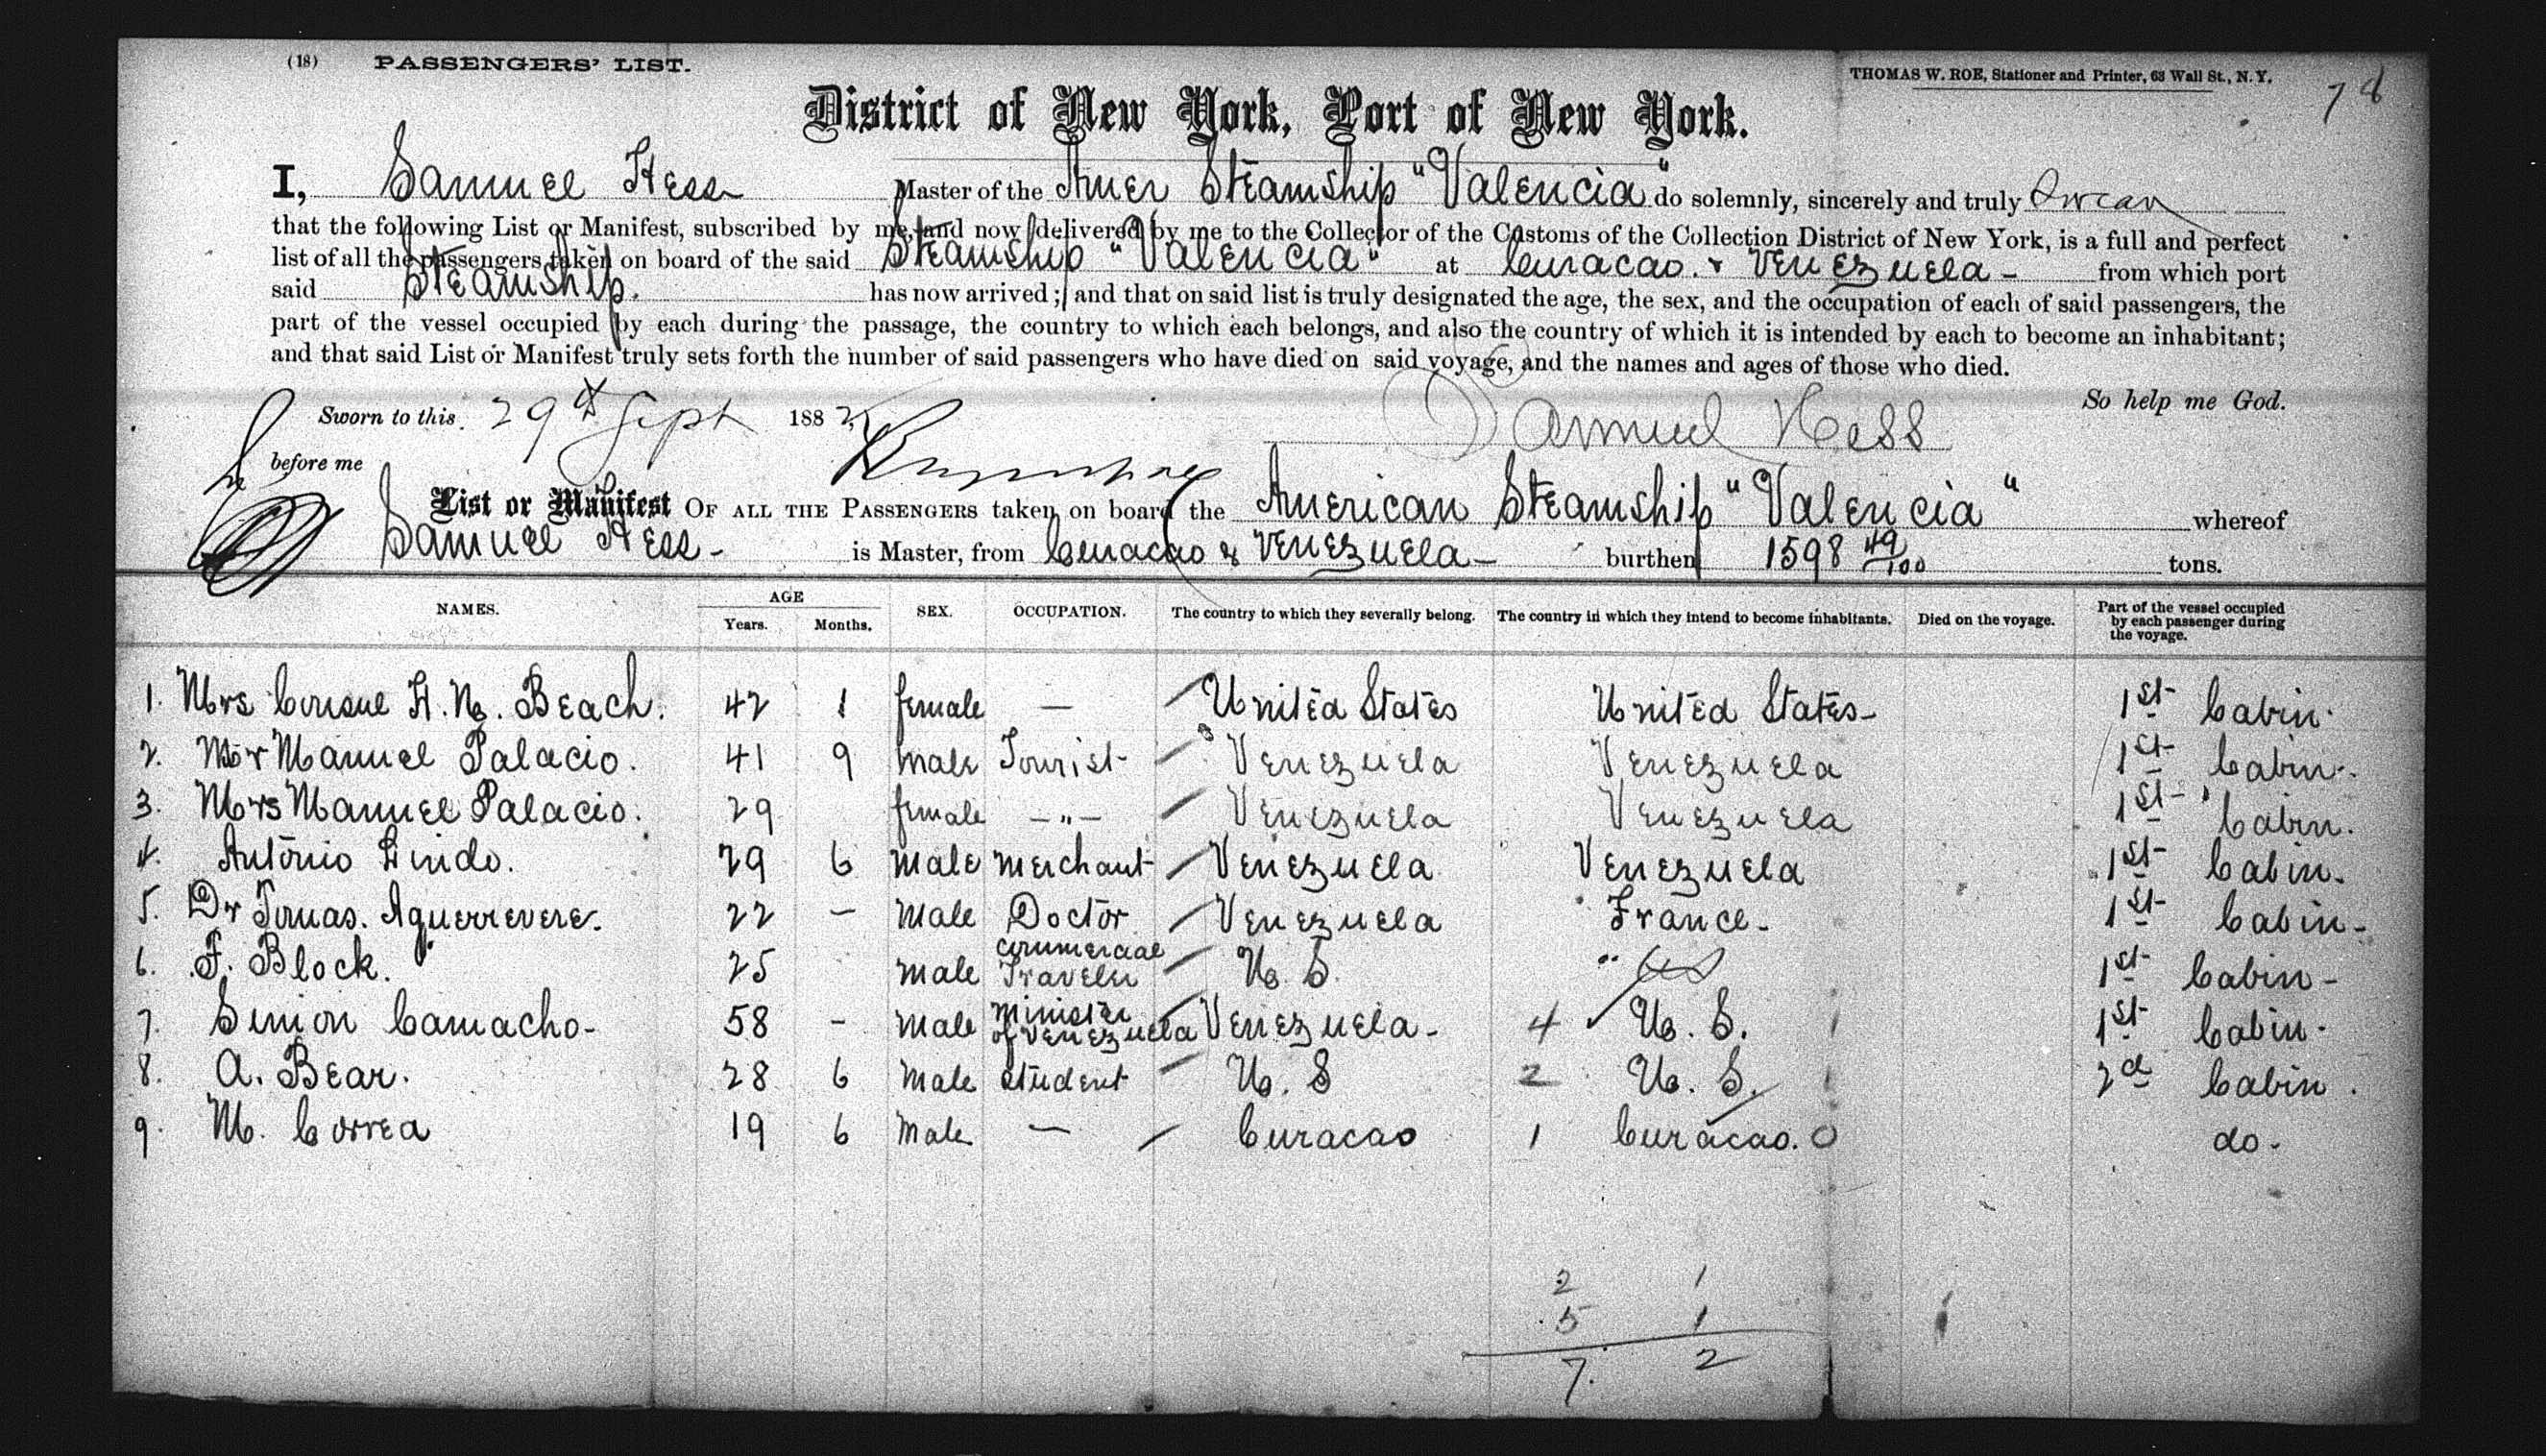 (18) PASSENGERS' LIST.
THOMAS W. ROE, Stationer and Printer, 63 Wall St., N. Y.
78
District of New York, Port of New York.
I, Samuel Hess Master of the Amer Steamship "Valencia" do solemnly, sincerely and truly Swear
that the following List or Manifest, subscribed by me, and now delivered by me to the Collector of the Customs of the Collection District of New York, is a full and perfect
list of all the passengers taken on board of the said Steamship "Valencia" at Curacao & Venezuela - from which port
said Steamship. has now arrived; and that on said list is truly designated the age, the sex, and the occupation of each of said passengers, the
part of the vessel occupied by each during the passage, the country to which each belongs, and also the country of which it is intended by each to become an inhabitant;
and that said List or Manifest truly sets forth the number of said passengers who have died on said voyage, and the names and ages of those who died.
So help me God.
Sworn to this 29th Sept 1882 Samuel Hess
before me
List or Manifest OF ALL THE PASSENGERS taken on board the American Steamship "Valencia" whereof
Samuel Hess - is Master, from Curacao & Venezuela - burthen 1598 49/100 tons.
NAMES. AGE Years. Months. SEX. OCCUPATION. The country to which they severally belong. The country in which they intend to become inhabitants. Died on the voyage. Part of the vessel occupied by each passenger during the voyage.
1. Mrs Consul H. M. Beach. 42 1 female — United States United States - 1st Cabin.
2. Mr Manuel Palacio. 41 9 male Tourist Venezuela Venezuela 1st Cabin.
3. Mrs Manuel Palacio. 29 female -"- Venezuela Venezuela 1st Cabin.
4. Antonio Lindo. 29 6 male merchant Venezuela Venezuela 1st Cabin.
5. Dr Tomas. Aguerrevere. 22 - male Doctor Venezuela France - 1st Cabin -
6. F. Block. 25 male Commercial Traveler U. S. " US 1st Cabin -
7. Simon Camacho - 58 - male Minister of Venezuela Venezuela - 4 U. S. 1 1st Cabin.
8. A. Bear. 28 6 male student U. S 2 U. S. 1 2d Cabin.
9. M. Correa 19 6 male — Curacao 1 Curacao. 0 do -
2 1
5 1
7. 2